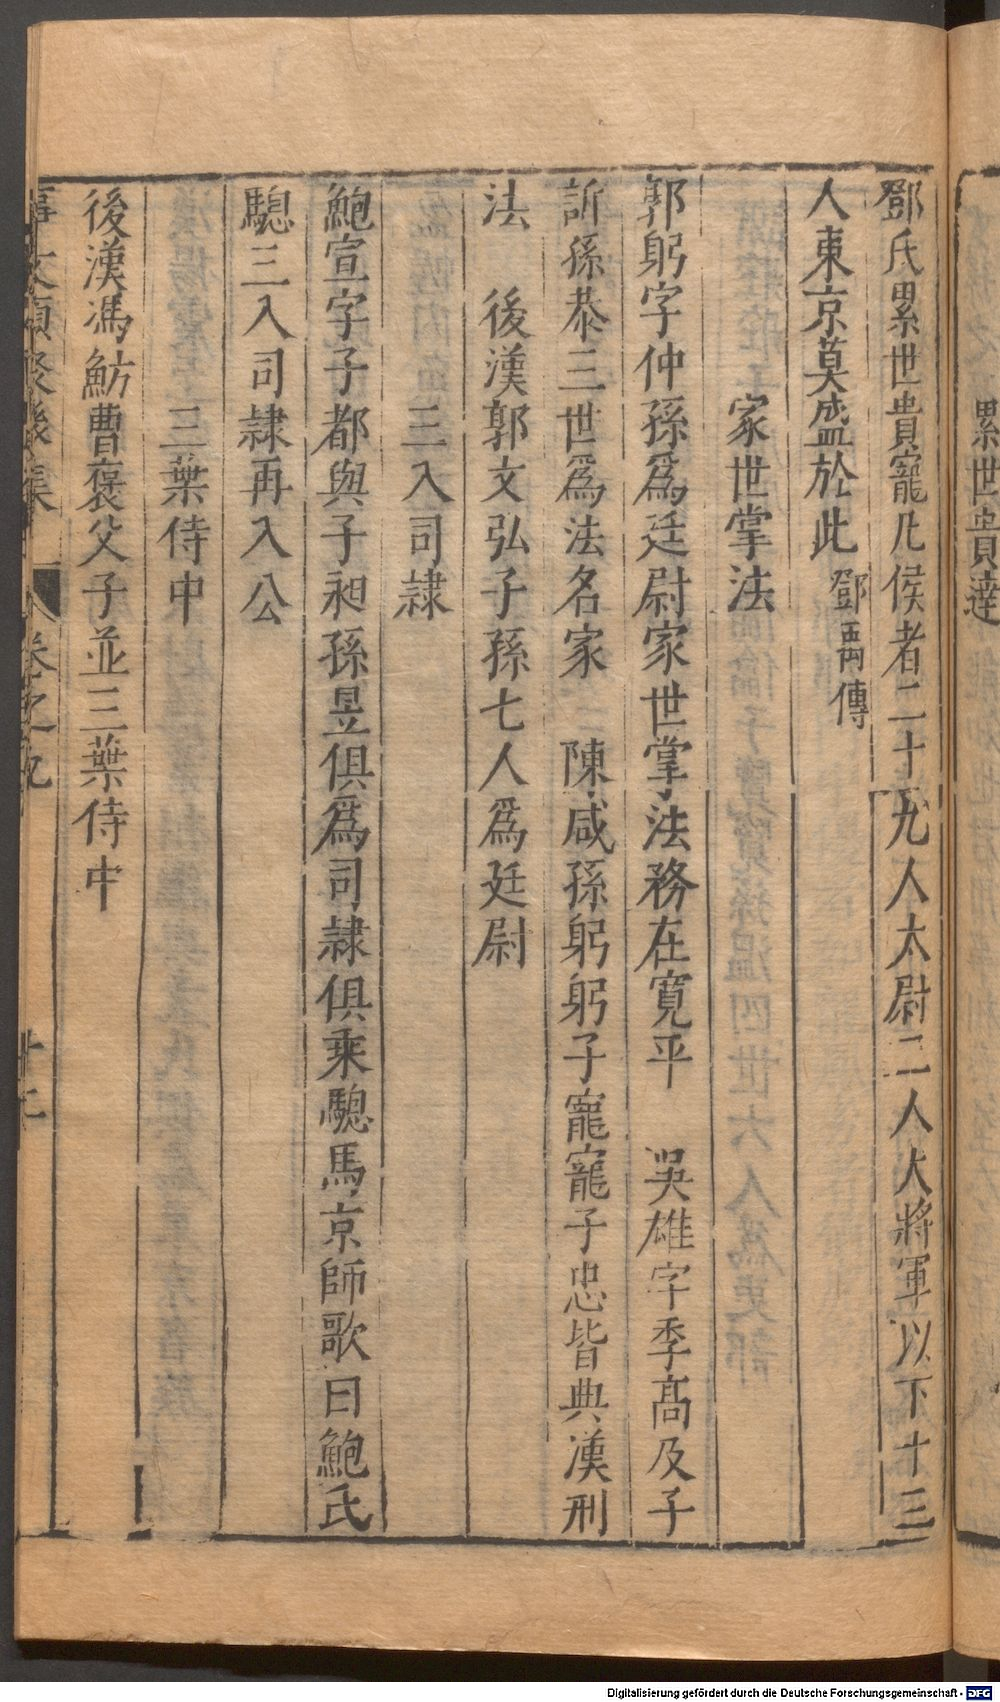 累世貴達
鄧氏累世貴寵凡侯者二十九人太尉二人大將軍以下十三
人東京莫盛於此 鄧禹傳
家世掌法
郭躬字仲孫爲廷尉家世掌法務在寛平 吳雄字季高及子
訢孫恭三世爲法名家 陳咸孫躬躬子寵寵子忠皆典漢刑
法 後漢郭文弘子孫七人爲廷尉
三入司隸
鮑宣字子都與子昶孫昱俱爲司隸俱乘騘馬京師歌曰鮑氏
騘三入司隸再入公
三葉侍中
後漢馮魴曹褒父子並三葉侍中
事文類聚後集 卷之九
Digitalisierung gefördert durch die Deutsche Forschungsgemeinschaft - DFG